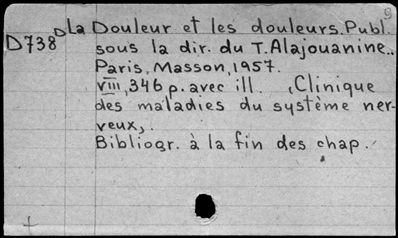 La Douleur et les douleurs. Publ.
D738
sous la dir. du T. Alajouanine..
Paris, Masson, 1957.
VIII, 346 p. avec ill. (Clinique
des maladies du système ner-
veux).
Bibliogr. à la fin des chap.